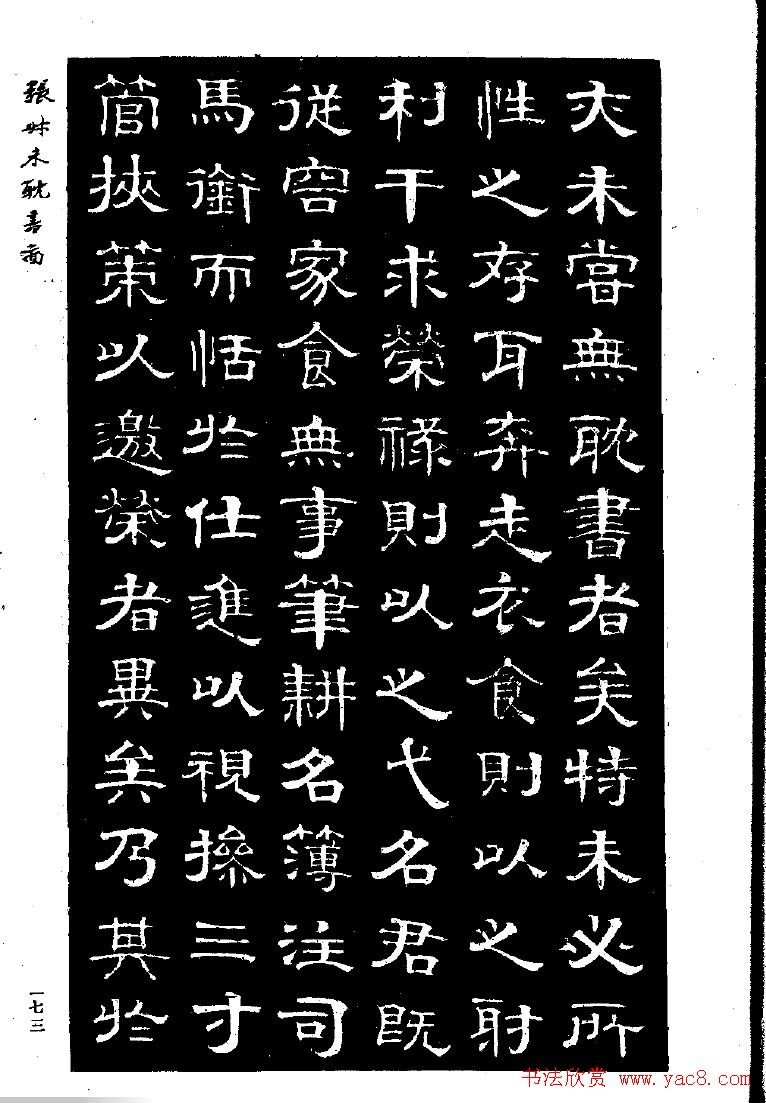 亦未嘗無耽書者矣特未必所
性之存耳奔走衣食則以之射
利干求榮祿則以之弋名君既
從容家食無事筆耕名簿注司
馬銜而恬於仕進以視操三寸
管挾策以邀榮者異矣乃其於
張叔未耽書圖
一七三
书法欣赏 www.yac8.com